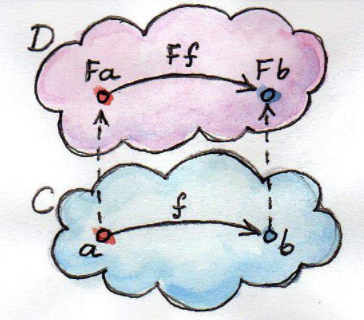 D
Fa Ff Fb
C
a f b